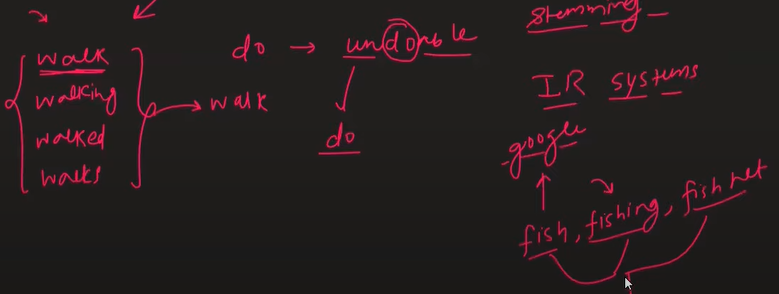 walk
walking
walked
walks
walk
do → undoable
do
Stemming
IR systems
google
fish, fishing, fishnet